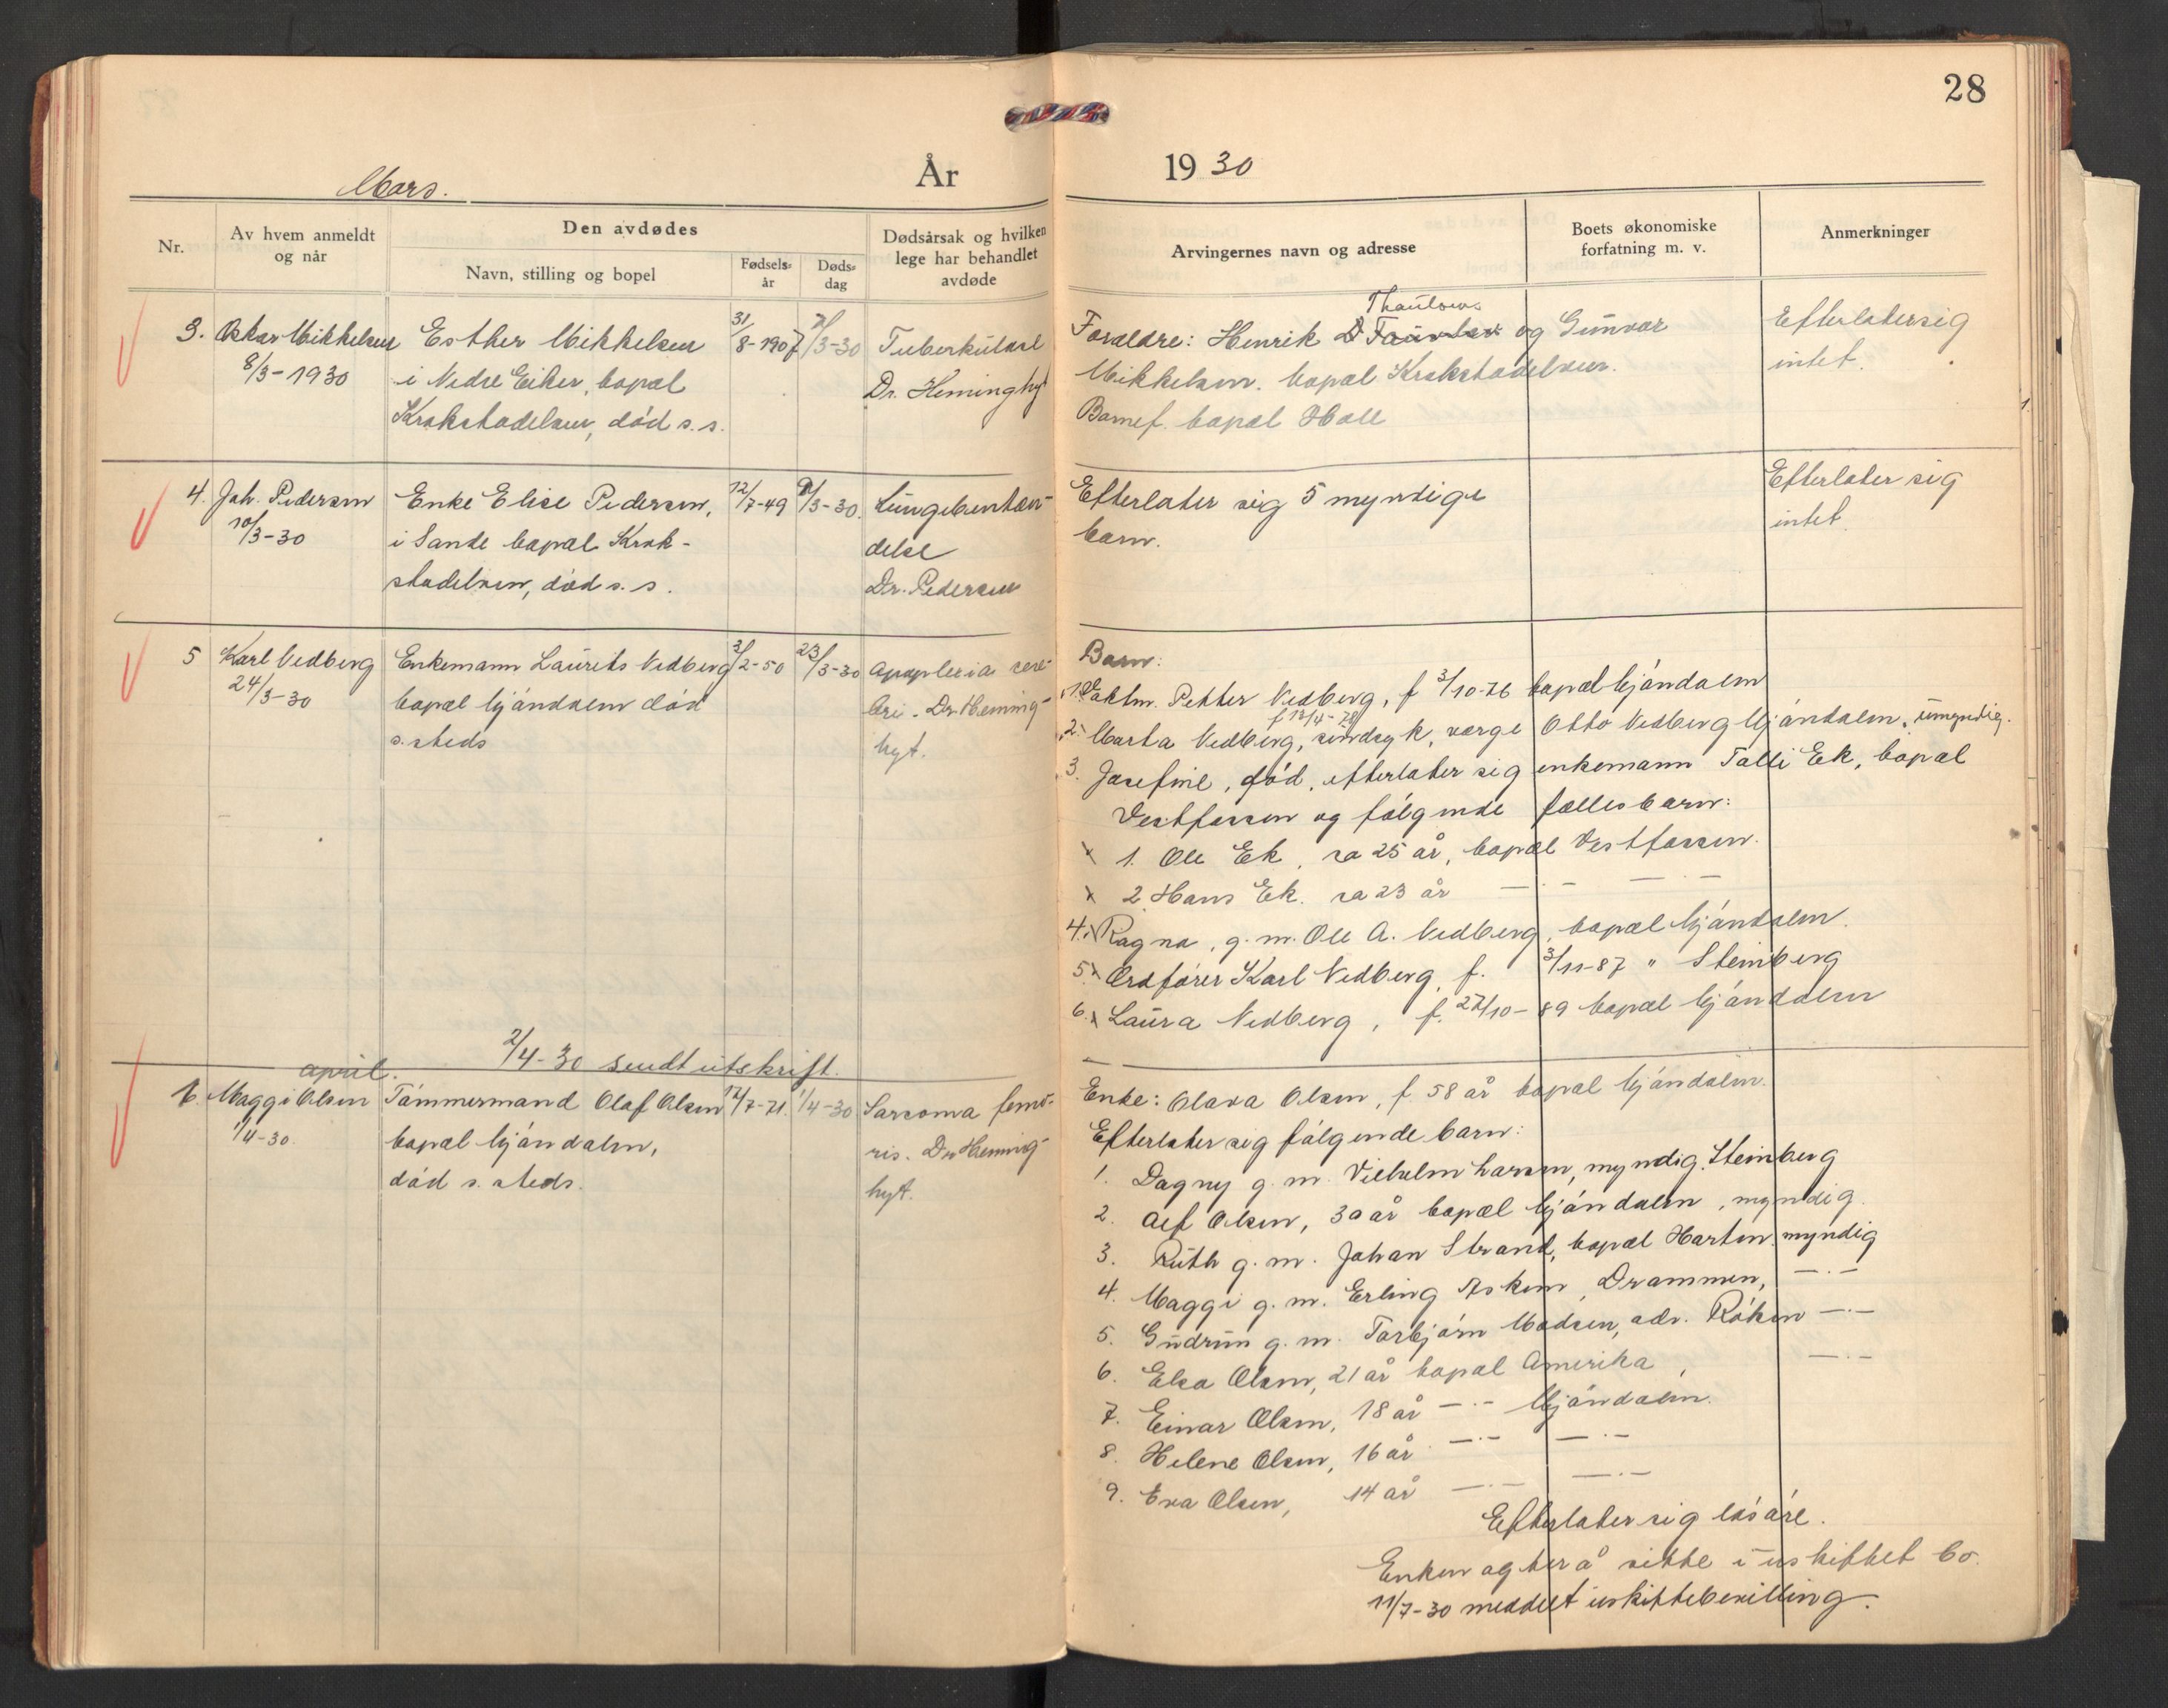 28
Mars.
År 1930
Nr.
Av hvem anmeldt og når
Den avdødes
Navn, stilling og bopel
Fødselsår
Dødsdag
Dødsårsak og hvilken lege har behandlet avdøde
Arvingernes navn og adresse
Boets økonomiske forfatning m. v.
Anmerkninger
3. Oskar Mikkelsen
8/3-1930
Esther Mikkelsen
i Nedre Eiker, bopæl
Krokstadelven, död s. s.
31/8-1907
7/3-30
Tuberkulose
Dr. Heminghyt
Thaulow.
Foreldre: Henrik og Gunvor
Mikkelsen. bopæl Krokstadelven.
Barnef. bopæl Hole
Efterlater sig
intet.
4. Joh. Pedersen
10/3-30
Enke Elise Pedersen,
i Sande bopæl Krok-
stadelven, död s. s.
12/7-49
9/3-30.
Lungebentæn-
delse
Dr. Pedersen
Efterlater sig 5 myndige
barn.
Efterlater sig
intet.
5 Karl Vedberg
24/3-30
Enkemann Laurits Vedberg
bopæl Mjöndalen död
s. steds
3/2-50
23/3-30
Apoplexia cere-
bri. Dr. Heming-
hyt.
Barn:
1. Petter Vedberg, f 3/10-76 bopæl Mjöndalen
f 12/4-78
2. Marta Vedberg, sindsyk, verge Otto Vedberg Mjöndalen, umyndig.
3. Josefine, död, efterlater sig enkemann Talli Ek, bopæl
Vestfossen og fölgende fællesbarn:
x 1. Ole Ek, ca 25 år, bopæl Vestfossen.
x 2 Hans Ek. ca 23 år —·— —·—
4. x Ragna, g. m. Ole A. Vedberg, bopæl Mjöndalen.
5. x Ordförer Karl Vedberg, f. 3/11-87 " Steinberg
6. x Laura Vedberg, f. 27/10-89 bopæl Mjöndalen
2/4-30 sendt utskrift.
april.
1. Maggi Olsen
1/4-30.
Tömmermand Olaf Olsen
bopæl Mjöndalen,
död s. steds.
12/7-71.
1/4-30
Sarcoma femo-
ris. Dr Heming-
hyt.
Enke: Olava Olsen, f 58 år bopæl Mjöndalen.
Efterlater sig fölgende barn:
1. Dagny g. m. Vilhelm Larsen, myndig. Steinberg
2. Alf Olsen, 30 år bopæl Mjöndalen, myndig.
3. Ruth g. m. Johan Strand, bopæl Horten. myndig
4. Maggi g. m. Erling Askim, Drammen, —·—
5. Gudrun g. m. Torbjörn Madsen, adr. Röken —·—
6. Elsa Olsen, 21 år bopæl Amerika, —·—
7. Einar Olsen, 18 år —·— Mjöndalen.
8. Helene Olsen, 16 år —·— —·—
9. Eva Olsen, 14 år —·— —·—
Efterlater sig lösöre.
Enken agter å sitte i uskiftet bo.
11/7-30 meddelt uskiftebevilling.